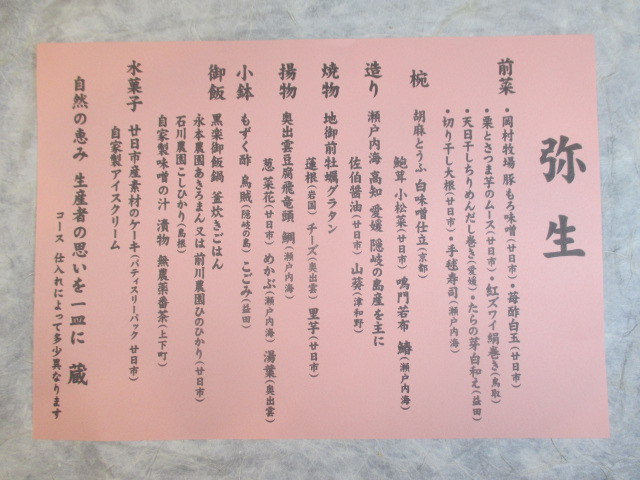 弥生
前菜 ・岡村牧場 豚もろ味噌(廿日市)・苺酢白玉(廿日市)
・栗とさつま芋のムース(廿日市)・紅ズワイ絹巻き(鳥取)
・天日干しちりめんだし巻き(愛媛)・たらの芽白和え(益田)
・切り干し大根(廿日市)・手毬寿司(瀬戸内海)
椀 胡麻とうふ 白味噌仕立(京都)
鮑茸 小松菜(廿日市) 鳴門若布 鰆(瀬戸内海)
造り 瀬戸内海 高知 愛媛 隠岐の島産を主に
佐伯醤油(廿日市) 山葵(津和野)
焼物 地御前牡蠣グラタン
蓮根(岩国) チーズ(奥出雲) 里芋(廿日市)
揚物 奥出雲豆腐飛竜頭 鯛(瀬戸内海)
葱 菜花(廿日市) めかぶ(瀬戸内海) 湯葉(奥出雲)
小鉢 もずく酢 烏賊(隠岐の島) こごみ(益田)
御飯 黒楽御飯鍋 釜炊きごはん
永本農園あきろまん又は 前川農園ひのひかり(廿日市)
石川農園こしひかり(島根)
自家製味噌の汁 漬物 無農薬番茶(上下町)
水菓子 廿日市産素材のケーキ(パティスリーパック 廿日市)
自家製アイスクリーム
自然の恵み 生産者の思いを一皿に 蔵
コース 仕入れによって多少異なります